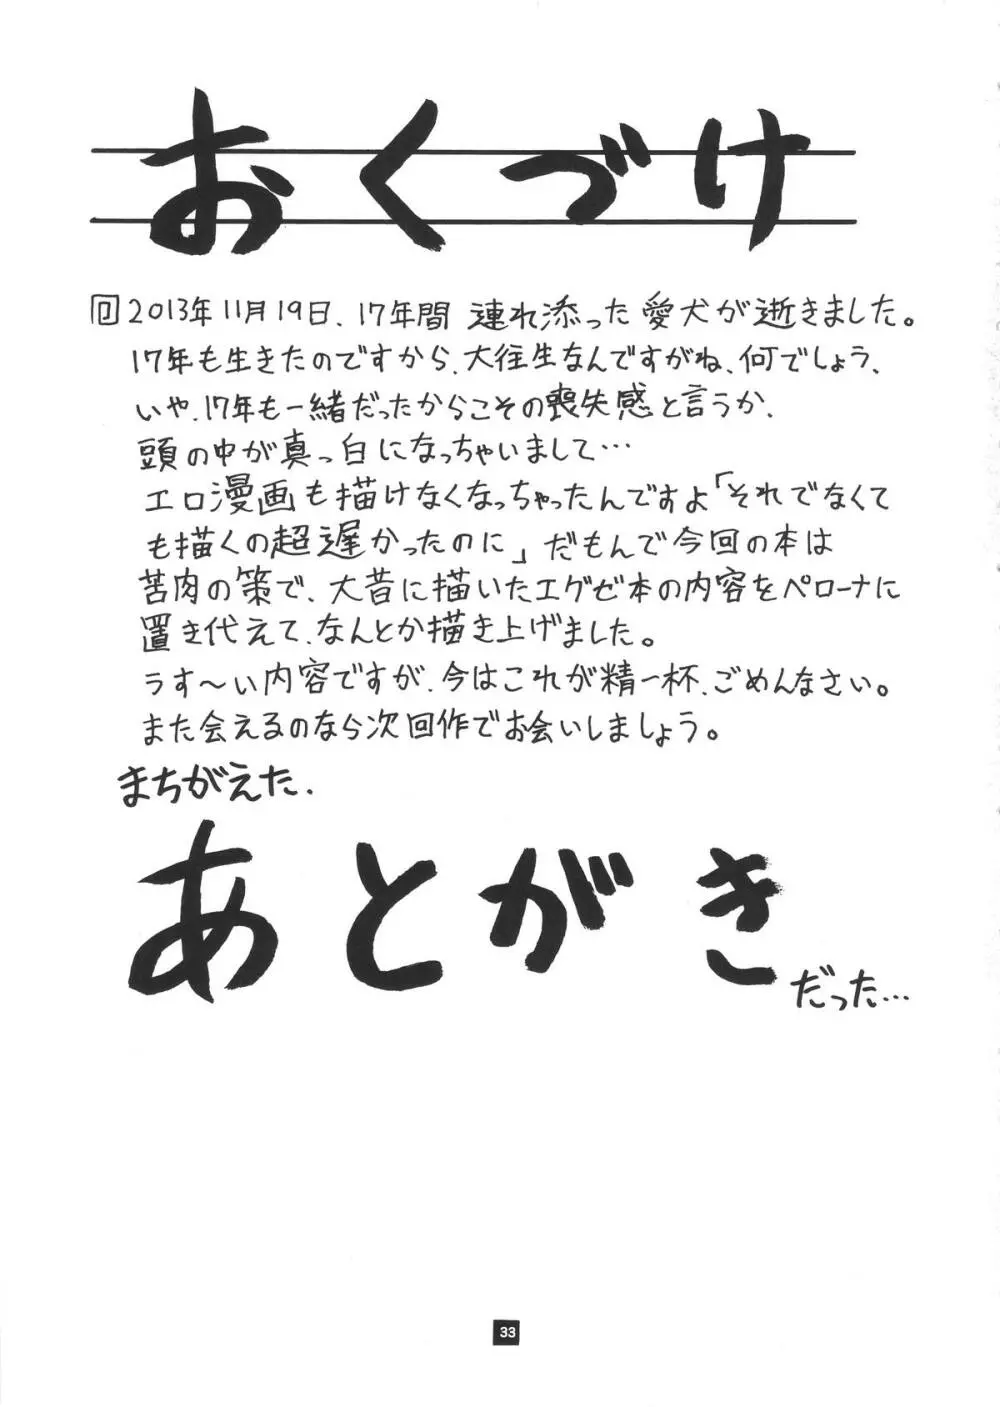 おくづけ
回2013年11月19日、17年間 連れ添った愛犬が逝きました。
17年も生きたのですから、大往生なんですがね、何でしょう、
いや、17年も一緒だったからこその喪失感と言うか、
頭の中が真っ白になっちゃいまして…
エロ漫画も描けなくなっちゃったんですよ「それでなくて
も描くの超遅かったのに」だもんで今回の本は
苦肉の策で、大昔に描いたエグゼ本の内容をペローナに
置き代えて、なんとか描き上げました。
うす〜い内容ですが、今はこれが精一杯、ごめんなさい。
また会えるのなら次回作でお会いしましょう。
まちがえた.
あとがきだった…
33